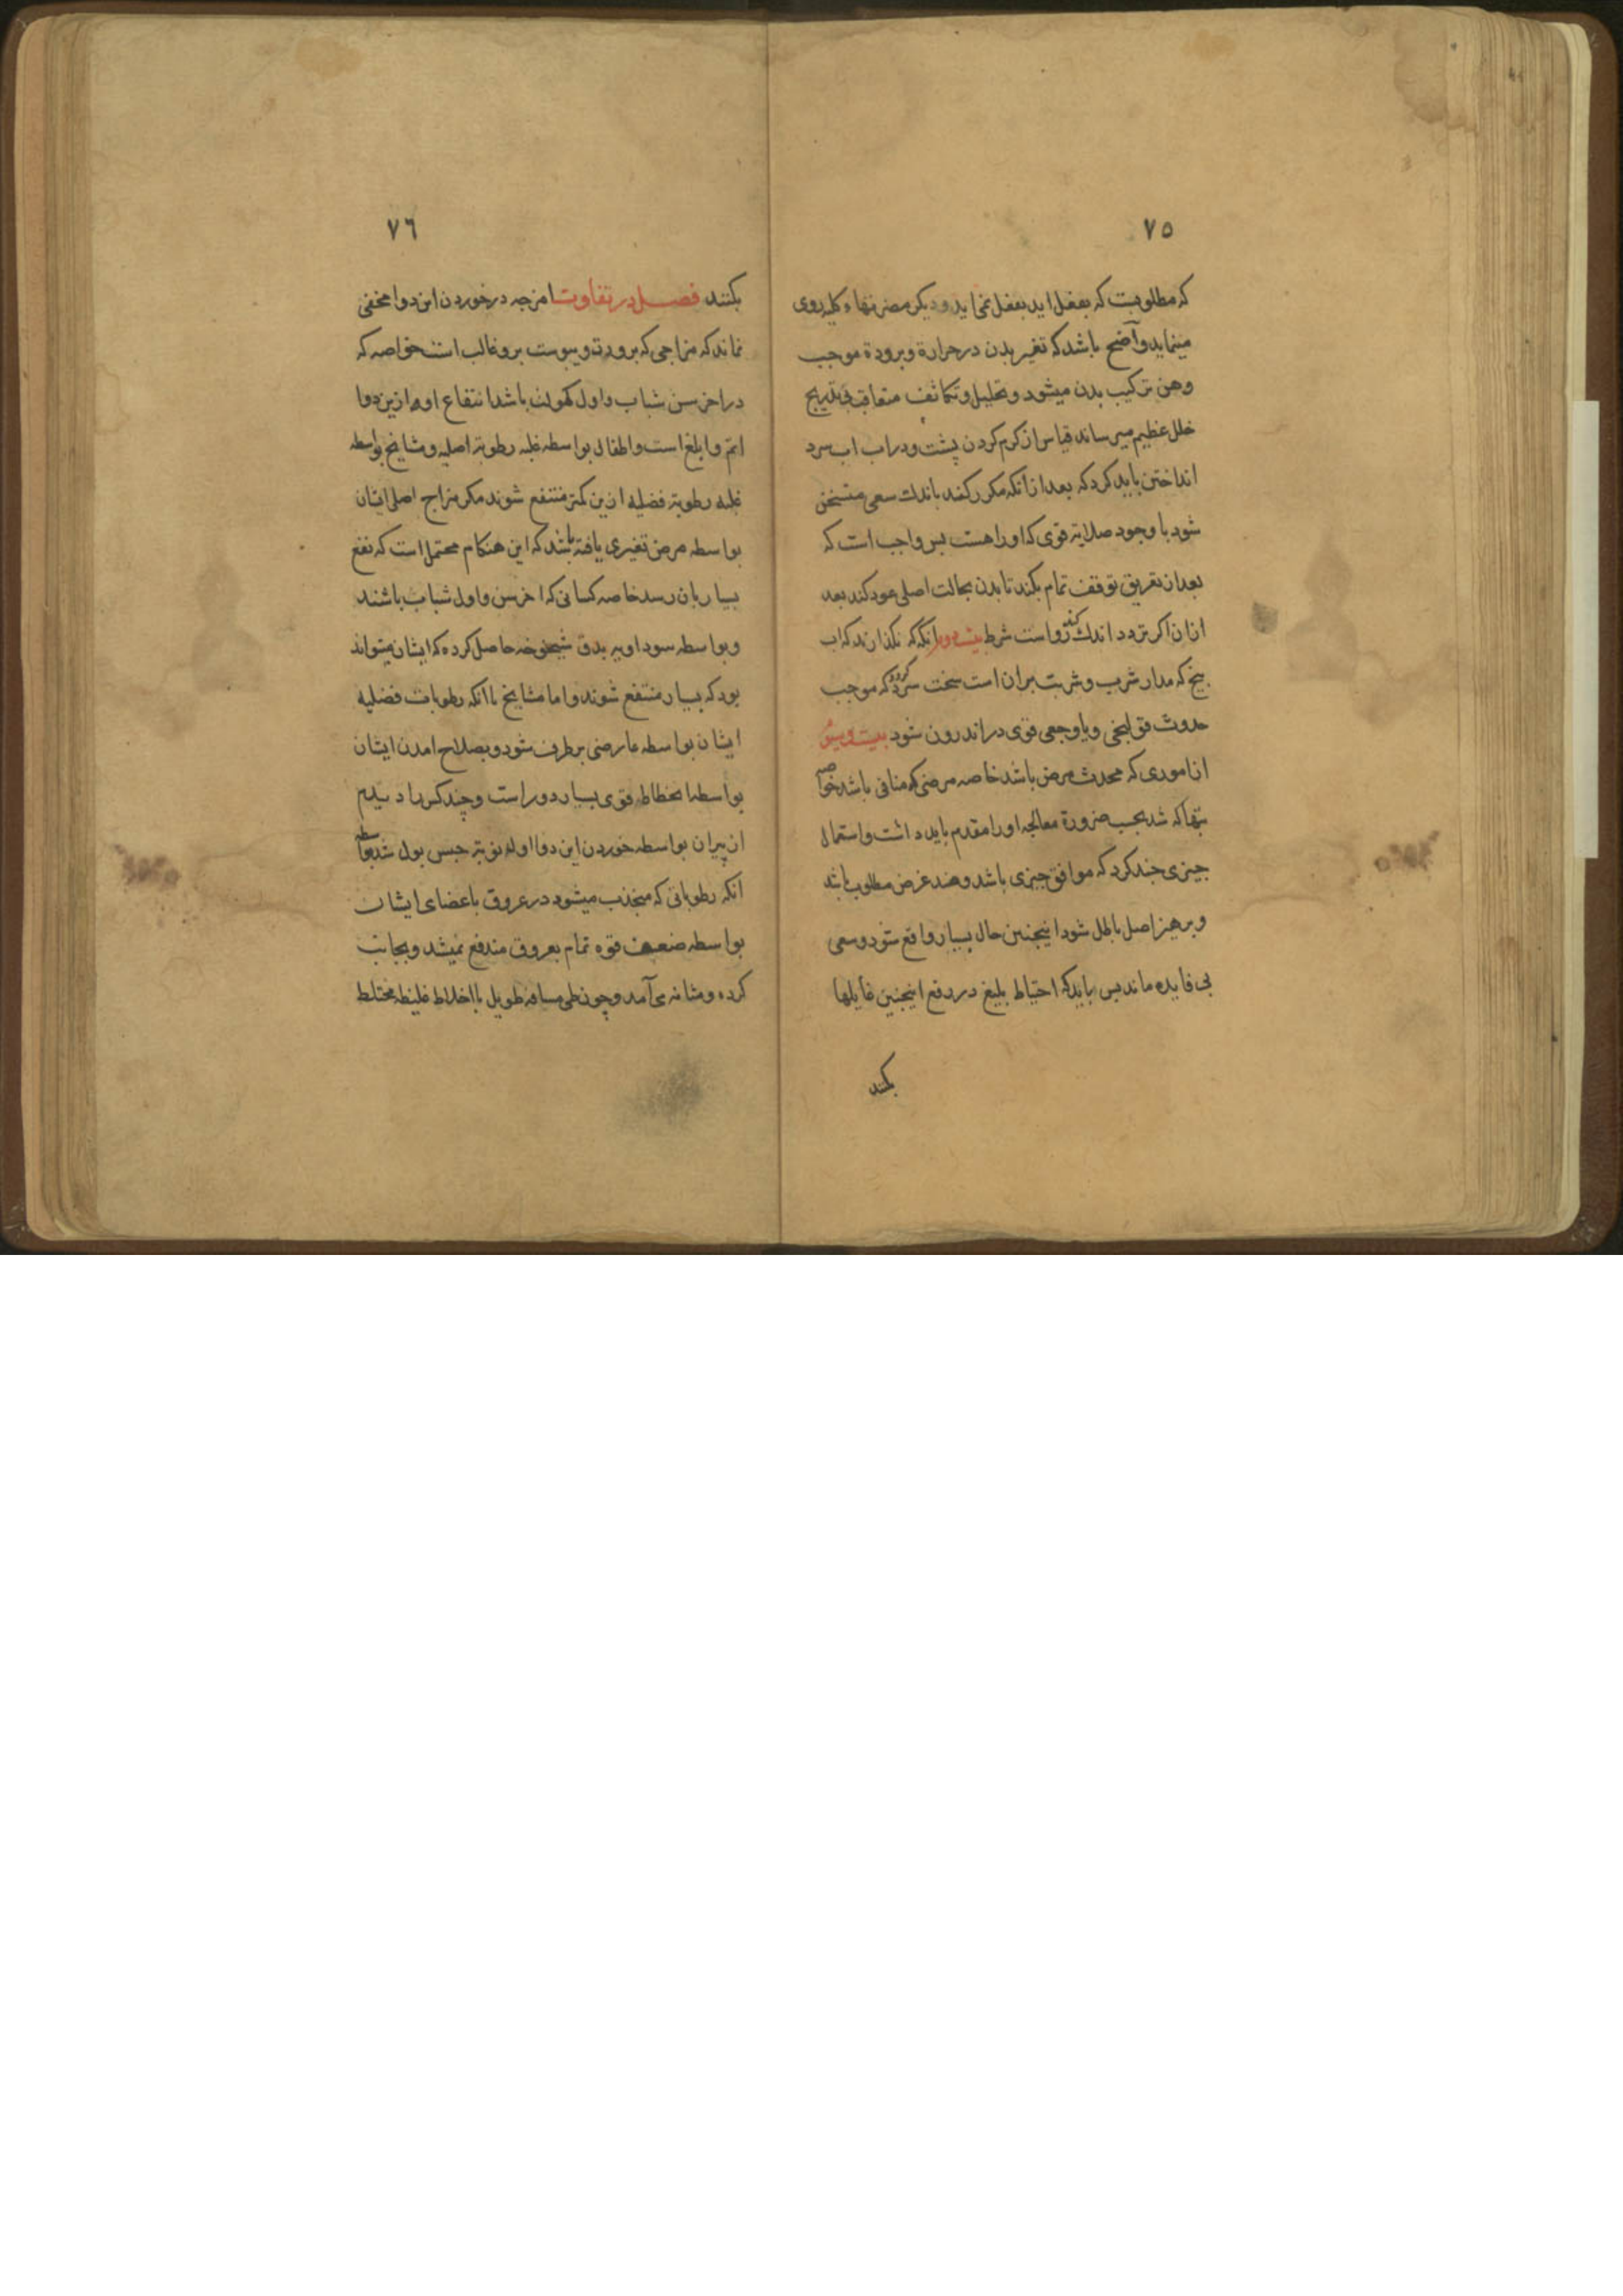 ٧٥
که مطلوبست که بفعل اید بفعل نمی اید و دیکر مضرتهاء کلیه روی
مینماید واضح باشد که تغیر بدن در حرارة و برودة موجب
وهن ترکیب بدن میشود و تحلیل و تکاثف متعاقب بی تدریج
خلل عظیم میرساند قیاس از کرم کردن پشت و در اب سرد
انداختن باید کرد که بعد از انکه مکرر کنند باندک سعی متسخن
شود با وجود صلابة قوی که او را هست بس واجب است که
بعد از تعریق توقف تمام بکند تا بدن بحالت اصلی عود کند بعد
ازان اکر تردد اندک کند رواست شرط بیست و دوم انکه که نکذارند که اب
بیخ که مدار شرب و شربت بران است سخت سرد کردد که موجب
حدوث قولنجی و یا وجعی قوی در اندرون شود بیست و سوم
از اموری که محدث مرض باشد خاصه مرضی که منافی باشد خواصه
تبها که شد بحسب ضرورة معالجه او را مقدم باید داشت و استعمال
چیزی چند کرد که موافق چیزی باشد و ضد غرض مطلوب باشد
و برهیز اصل باطل شود اینچنین حال بسیار واقع شود و سعی
بی فایده ماند بس باید که احتیاط بلیغ در دفع اینچنین غایلها
بکنند
٧٦
بکنند فصل در تفاوت امزجه در خوردن این دوا مخفی
نماند که مزاجی که برودت و یبوست برو غالب است خواصه که
در اخر سن شباب و اول کهولت باشد انتفاع او ازین دوا
اتم و ابلغ است و اطفال بواسطه غلبه رطوبة اصلیه و مشایخ بواسطه
غلبه رطوبة فضلیه ازین کمتر منتفع شوند مکر مزاج اصلی ایشان
بواسطه مرض تغیری یافته باشد که این هنکام محتمل است که نفع
بسیار بان رسد خاصه کسانی که اخر سن و اول شباب باشند
و بواسطه سوداویه بدق شیخوخه حاصل کرده که ایشان میتواند
بود که بسیار منتفع شوند و اما مشایخ با انکه رطوبات فضلیه
ایشان بواسطه عارضی برطرف شود و بصلاح امدن ایشان
بواسطه انحطاط قوی بسیار دور است و چند کس را دیدیم
از پیران بواسطه خوردن این دوا اوله نوبة حبس بول شد بواسطه
انکه رطوباتی که منجذب میشود در عروق باعضای ایشان
بواسطه ضعف قوه تمام بعروق مندفع نمیشد و بجانب
کرده و مثانه می آمد و چون طی مسافه طویل با اخلاط غلیظه مختلط